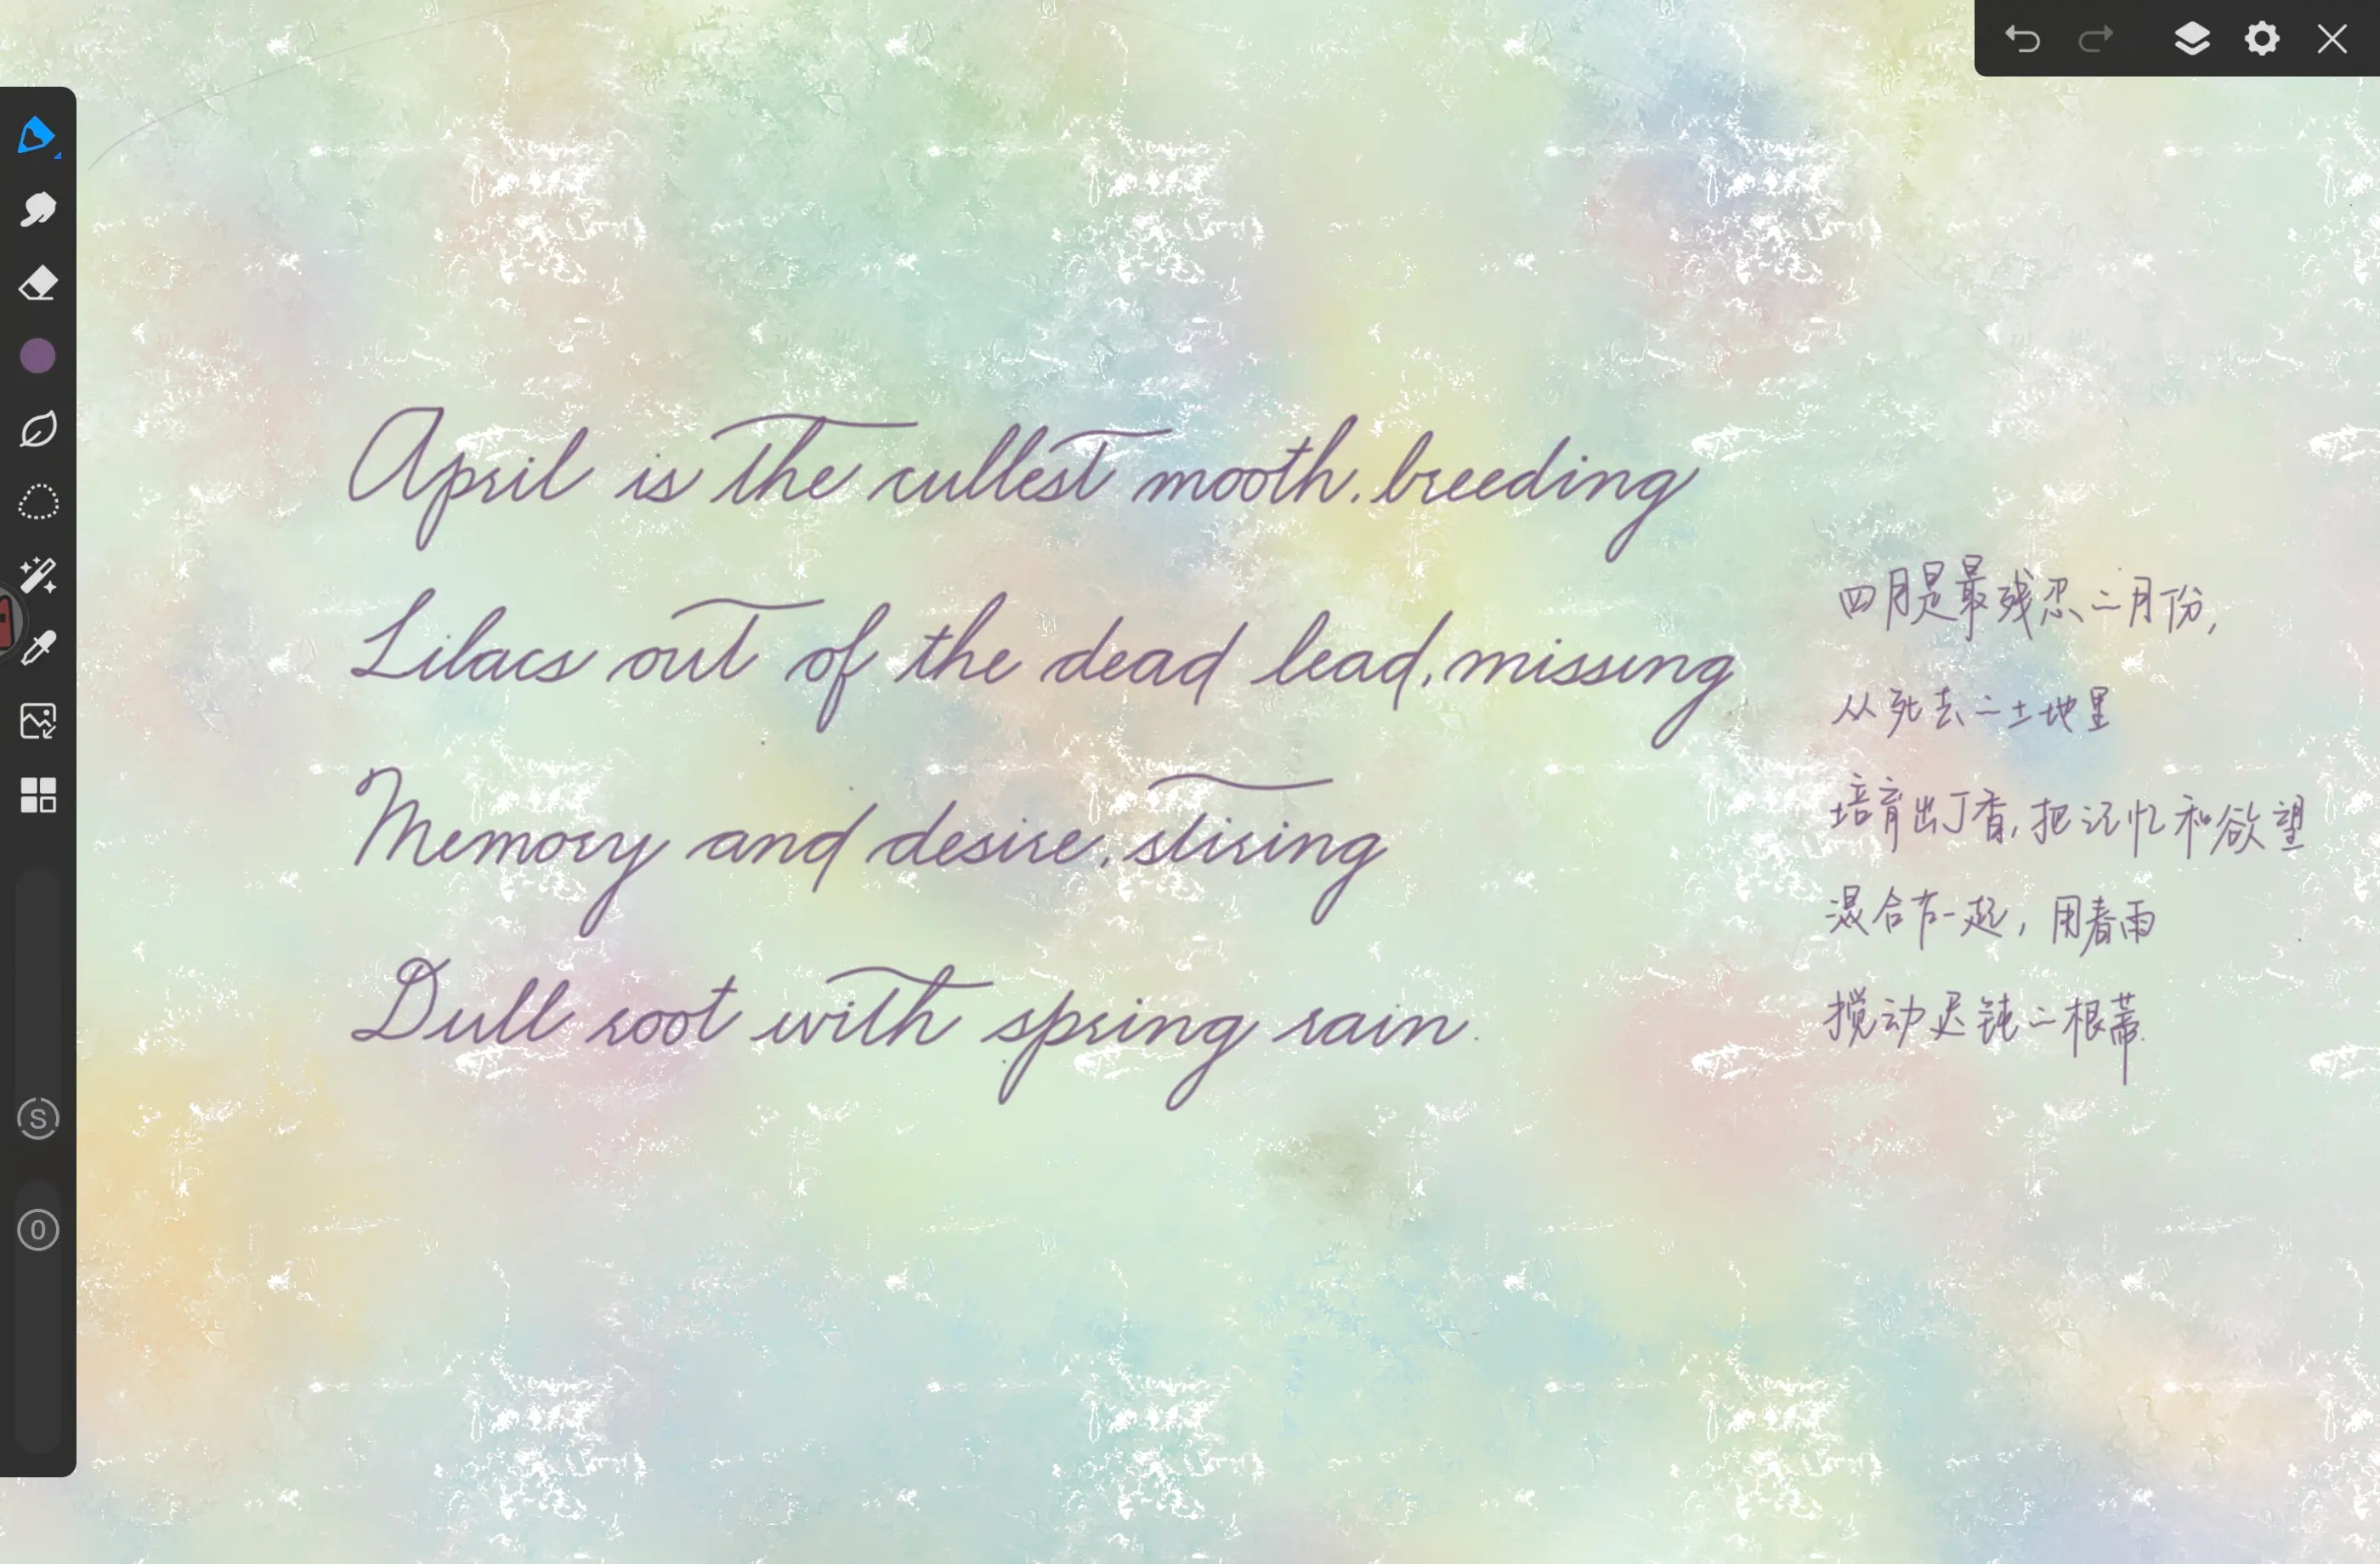 April is the cullest mooth, breeding
Lilacs out of the dead lead, missing
Memory and desire, stiring
Dull root with spring rain.
四月是最残忍二月份,
从死去二土地里
培育出丁香,把记忆和欲望
混合在一起,用春雨
搅动迟钝二根蒂.
S
O